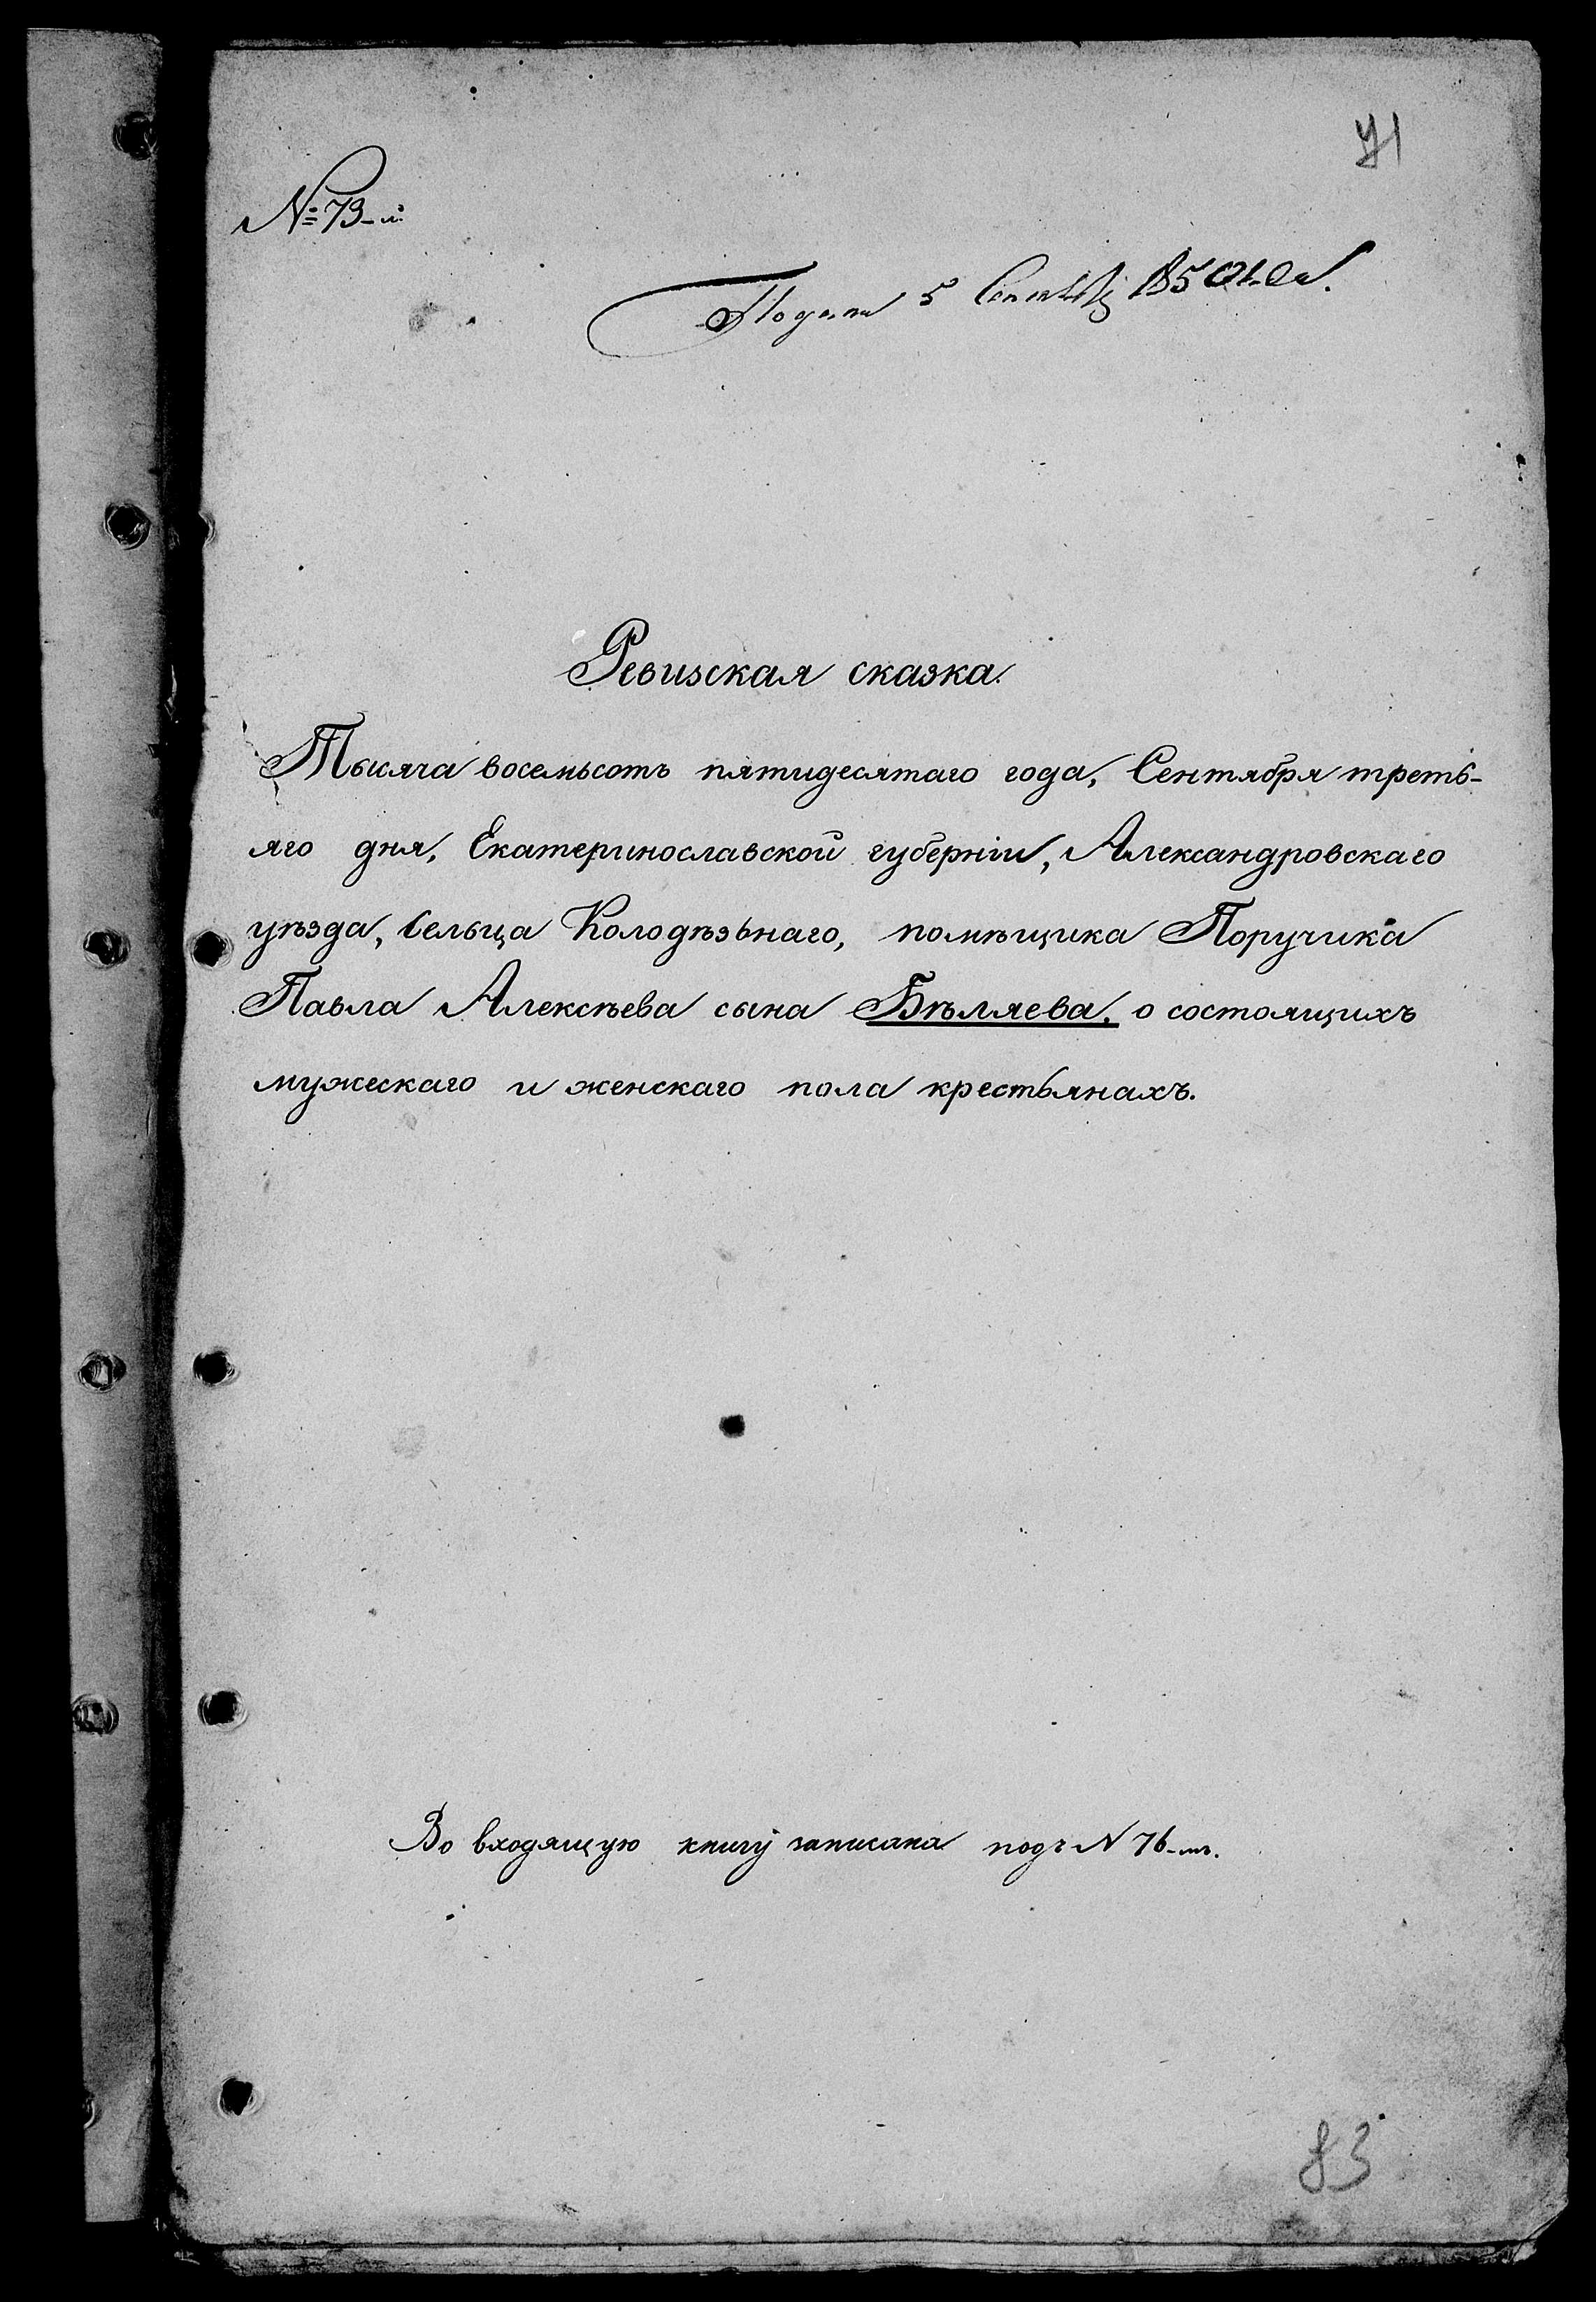 71
№ 73-й
Подана 5 Сентября 1850 года.
Ревизская сказка.
Тысяча восемьсотъ пятидесятаго года, Сентября треть-
яго дня, Екатеринославской губерніи, Александровскаго
уѣзда, Сельца Колодѣзьнаго, помѣщика Поручика
Павла Алексѣева сына Бѣляева, о состоящихъ
мужескаго и женскаго пола крестьянахъ.
Во входящую книгу записана подъ N 76-мъ.
83